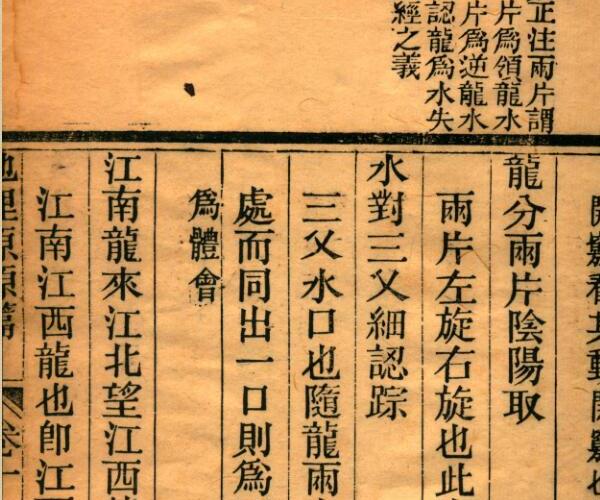 正注兩片謂
片爲領龍水
片爲逆龍水
認龍爲水失
經之義
開竅看其動開竅也
龍分兩片陰陽取
兩片左旋右旋也此
水對三叉細認踪
三叉水口也隨龍兩
處而同出一口則爲
爲體會
江南龍來江北望江西
江南江西龍也卽江
地理原 篇
卷